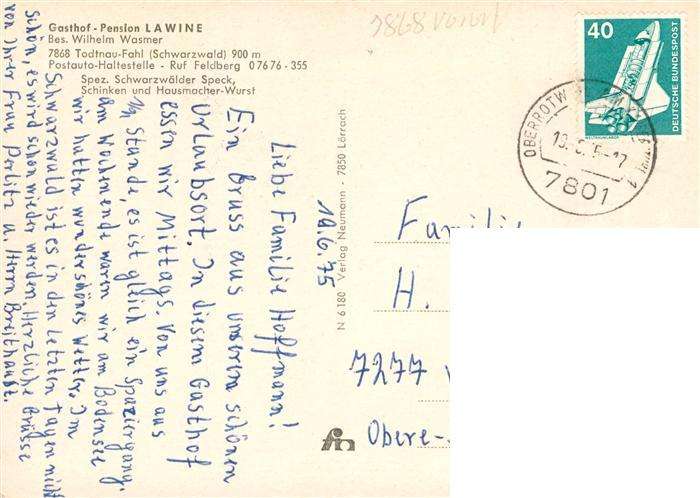 Gasthof - Pension LAWINE
Bes. Wilhelm Wasmer
7868 Todtnau-Fahl (Schwarzwald) 900 m
Postauto-Haltestelle - Ruf Feldberg 0 76 76 - 355
Spez. Schwarzwälder Speck,
Schinken und Hausmacher-Wurst
19.6.75
Liebe Familie Hoffmann!
Ein Gruss aus unserem schönen
Urlaubsort. In diesem Gasthof
essen wir Mittags. Von uns aus
1½ Stunde, es ist gleich ein Spaziergang.
Am Wochenende waren wir am Bodensee
wir hatten wunderschönes Wetter. Im
Schwarzwald ist es in den letzten Tagen nicht
schön, es wird schon wieder werden. Herzliche Grüsse
von Ihrer Frau Perlitz u. Herrn Breithaupt.
N 6180 Verlag Neumann - 7850 Lörrach
fm
40
DEUTSCHE BUNDESPOST
OBERROTW
7801
Familie
H.
7277
Obere-